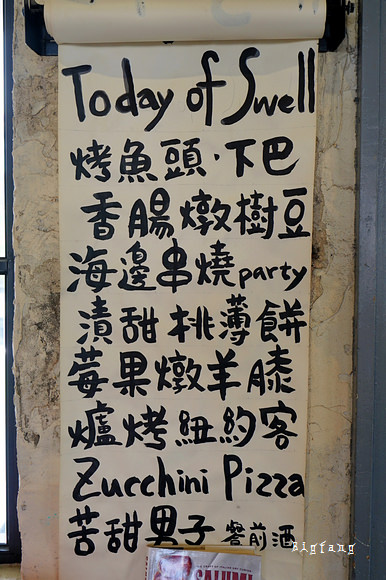 Today of Swell
烤魚頭·下巴
香腸燉樹豆
海邊串燒party
漬甜桃薄餅
莓果燉羊膝
爐烤紐約客
Zucchini Pizza
苦甜男子 餐前酒
Bigfang
SALUMI